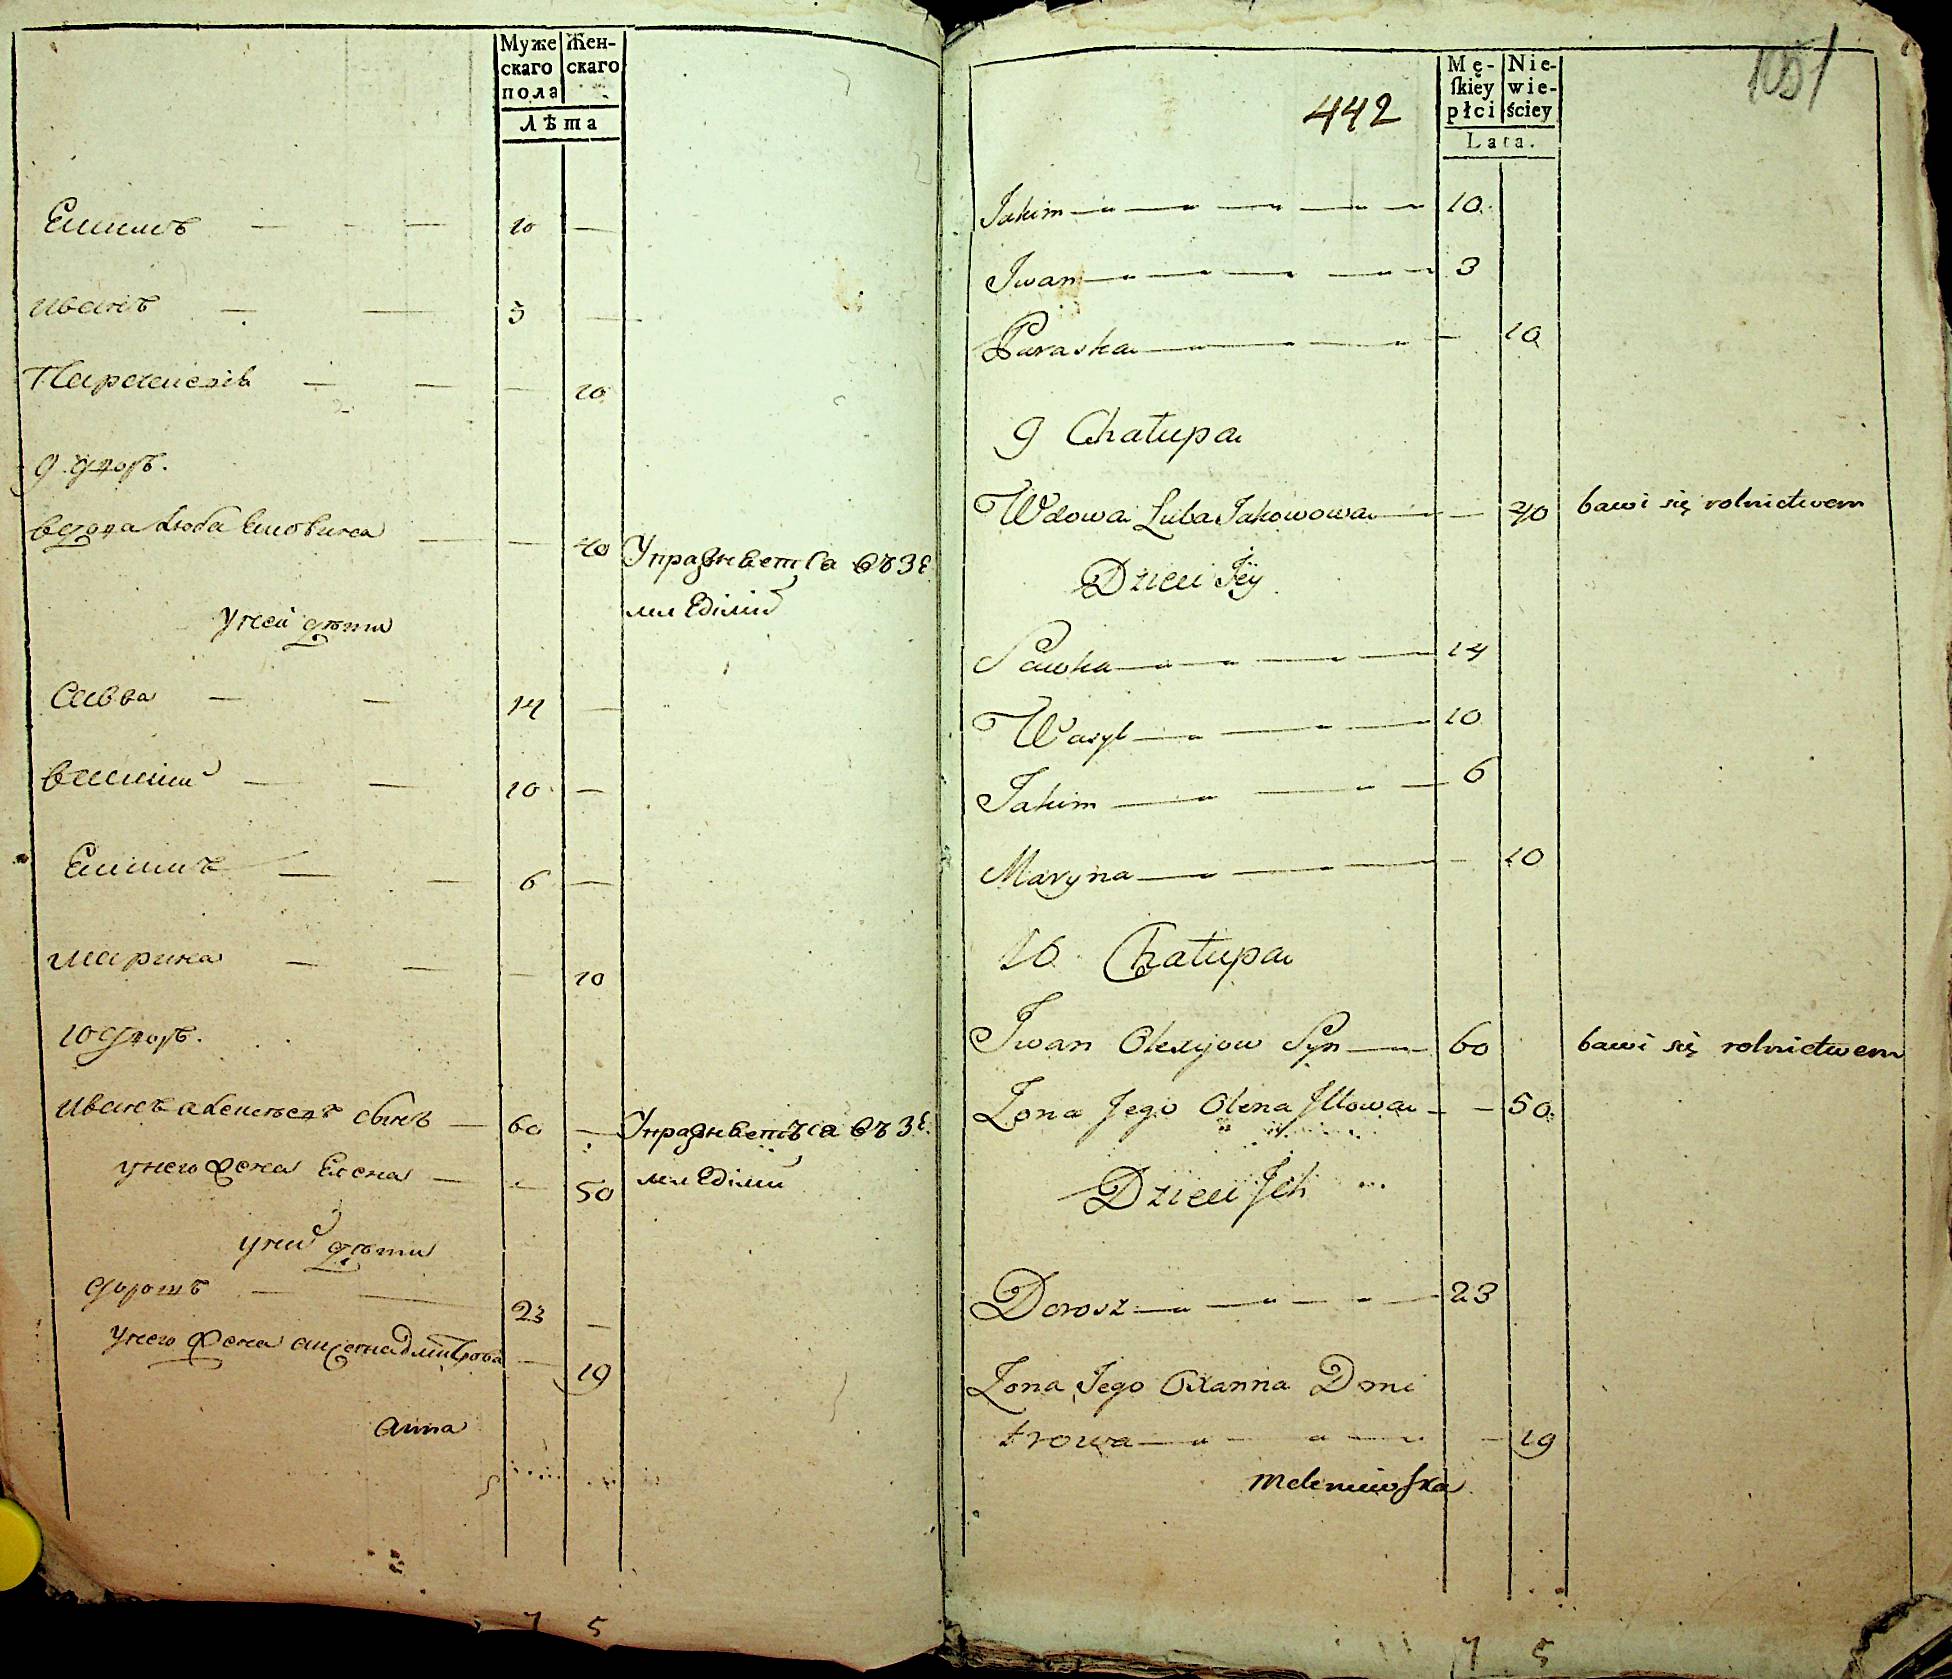 Муже Жен-
скаго скаго
пола
Лѣта
Екимъ — — — 10 —
иванъ — — 3 —
Параскевія — — — 10
9 дворъ.
вдова Люба — — 40 Упражняется въ зе
мледѣліи
у неи дѣти
Савва — — 14 —
василии — — 10 —
Екимъ — — 6 —
марина — — — 10
10 дворъ.
иванъ алексѣевъ сынъ — 60 — Упражняетъся въ зе
мледѣліи
у него жена Елена — — 50
у ниχъ дѣти
дорошъ — — 23 —
у него жена дмитрова — 19
анна
7 5
442
1051
Mę- Nie-
ſkiey wie-
płci ściey
Lata.
Jakim — — — — — 10
Jwan — — — — — 3
Paraska — — — — — 10
9 Chałupa
Wdowa Luba Jakowowa — — 40 bawi się rolnictwem
Dzieci Jey
Sawka — — — — 14
Wasyl — — — — 10
Jakim — — — — 6
Maryna — — — — — 10
10 Chałupa
Jwan Olexyjow Syn — 60 bawi się rolnictwem
Zona Jego Olena — — 50
Dzieci Jch
Dorosz — — — — — 23
Zona Jego Oxanna Dmi
trowa — — — — — 19
7 5